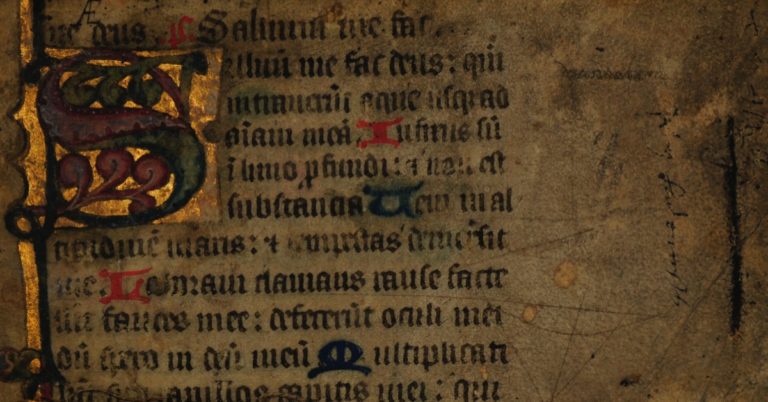 me deus. ps Saluum me fac
Saluū me fac deus: qm̄
intrauerūt aque usq ad
aīam meā Infixus sū
ī limo p̱fundi: ⁊ non est
substantia Veni in al
titudinē maris: ⁊ tempestas demersit
me: Laboraui clamans rauce facte
sūt fauces mee: defecerūt oculi mei
dū spero in deū meū Multiplicati
capillos capitis mei: qui